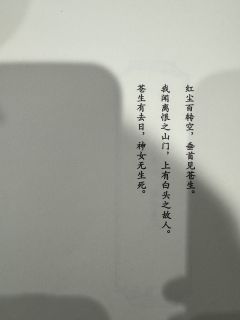 红尘百转空，垂首见苍生。
我闻离恨之山门，上有白头之故人。
苍生有去日，神女无生死。